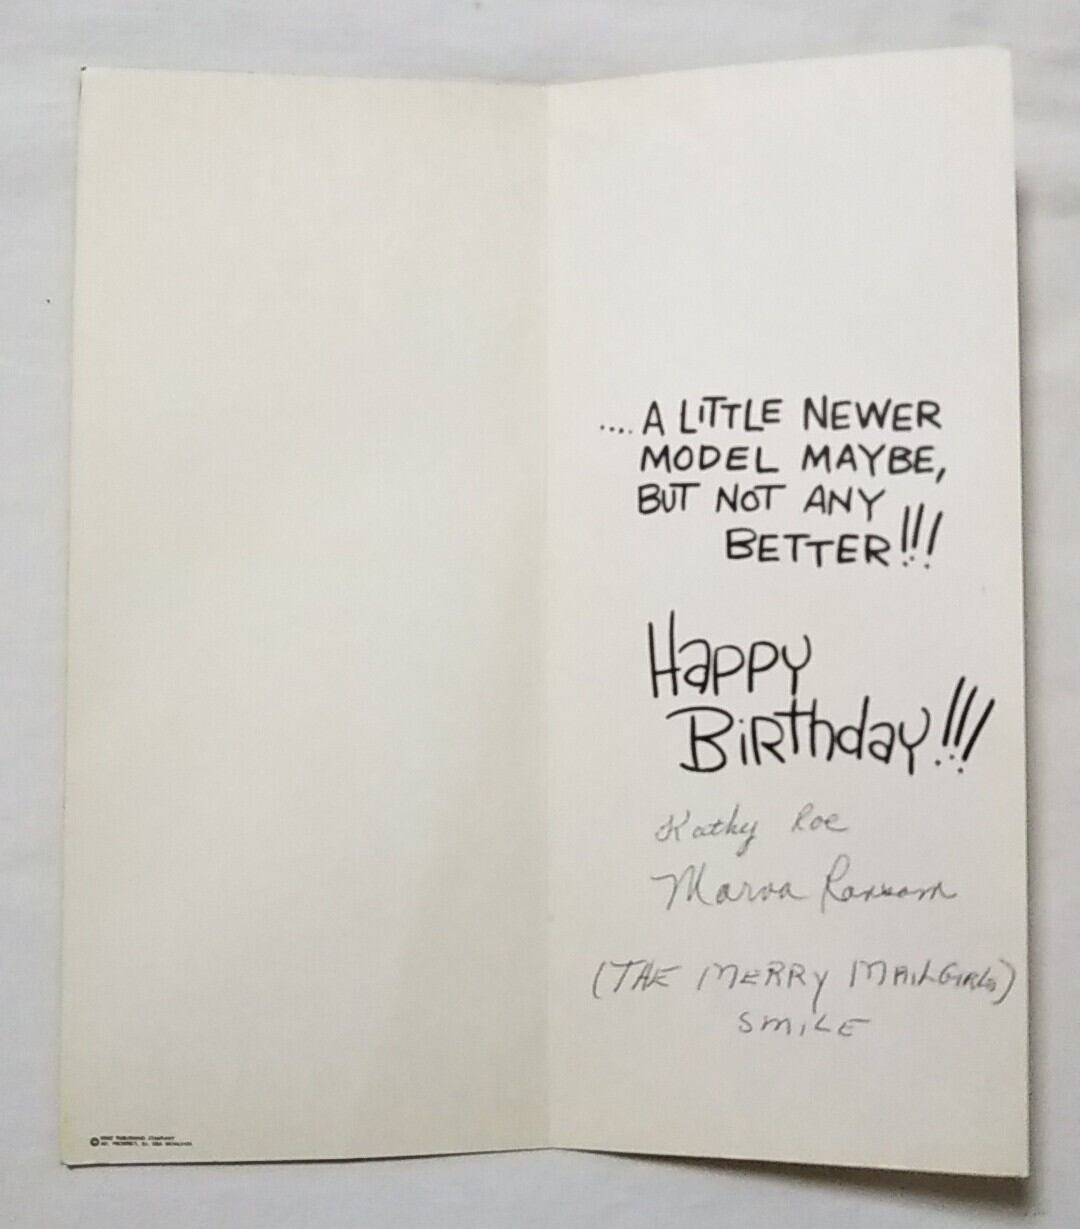 ....A LITTLE NEWER
MODEL MAYBE,
BUT NOT ANY
BETTER!!!
Happy
Birthday!!!
Kathy Roe
Marva Ransom
(THE MERRY MAILGIRLS)
SMILE
© PUBLISHING COMPANY